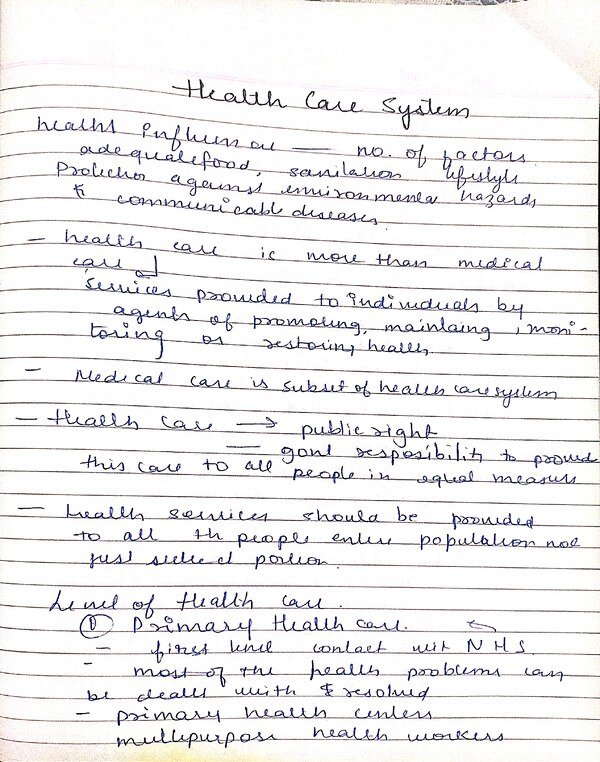 Health Care System
health Influence — no. of factors.
adequate food, sanitation lifestyle
Protection against environmental hazards
& communicable diseases.
- health care is more than medical
care
services provided to individuals by
agents of promoting, maintaing, moni-
toring or restoring health
- Medical care is subset of health care system
- Health care → public right
— govt resposibility to provide
this care to all people in equal measure
- health services should be provided
to all the people entire population not
just selected portion.
Level of Health care.
① Primary Health care.
- first level contact with NHS.
- most of the health problems can
be dealt with & resolved
- primary health centers
multipurpose health workers